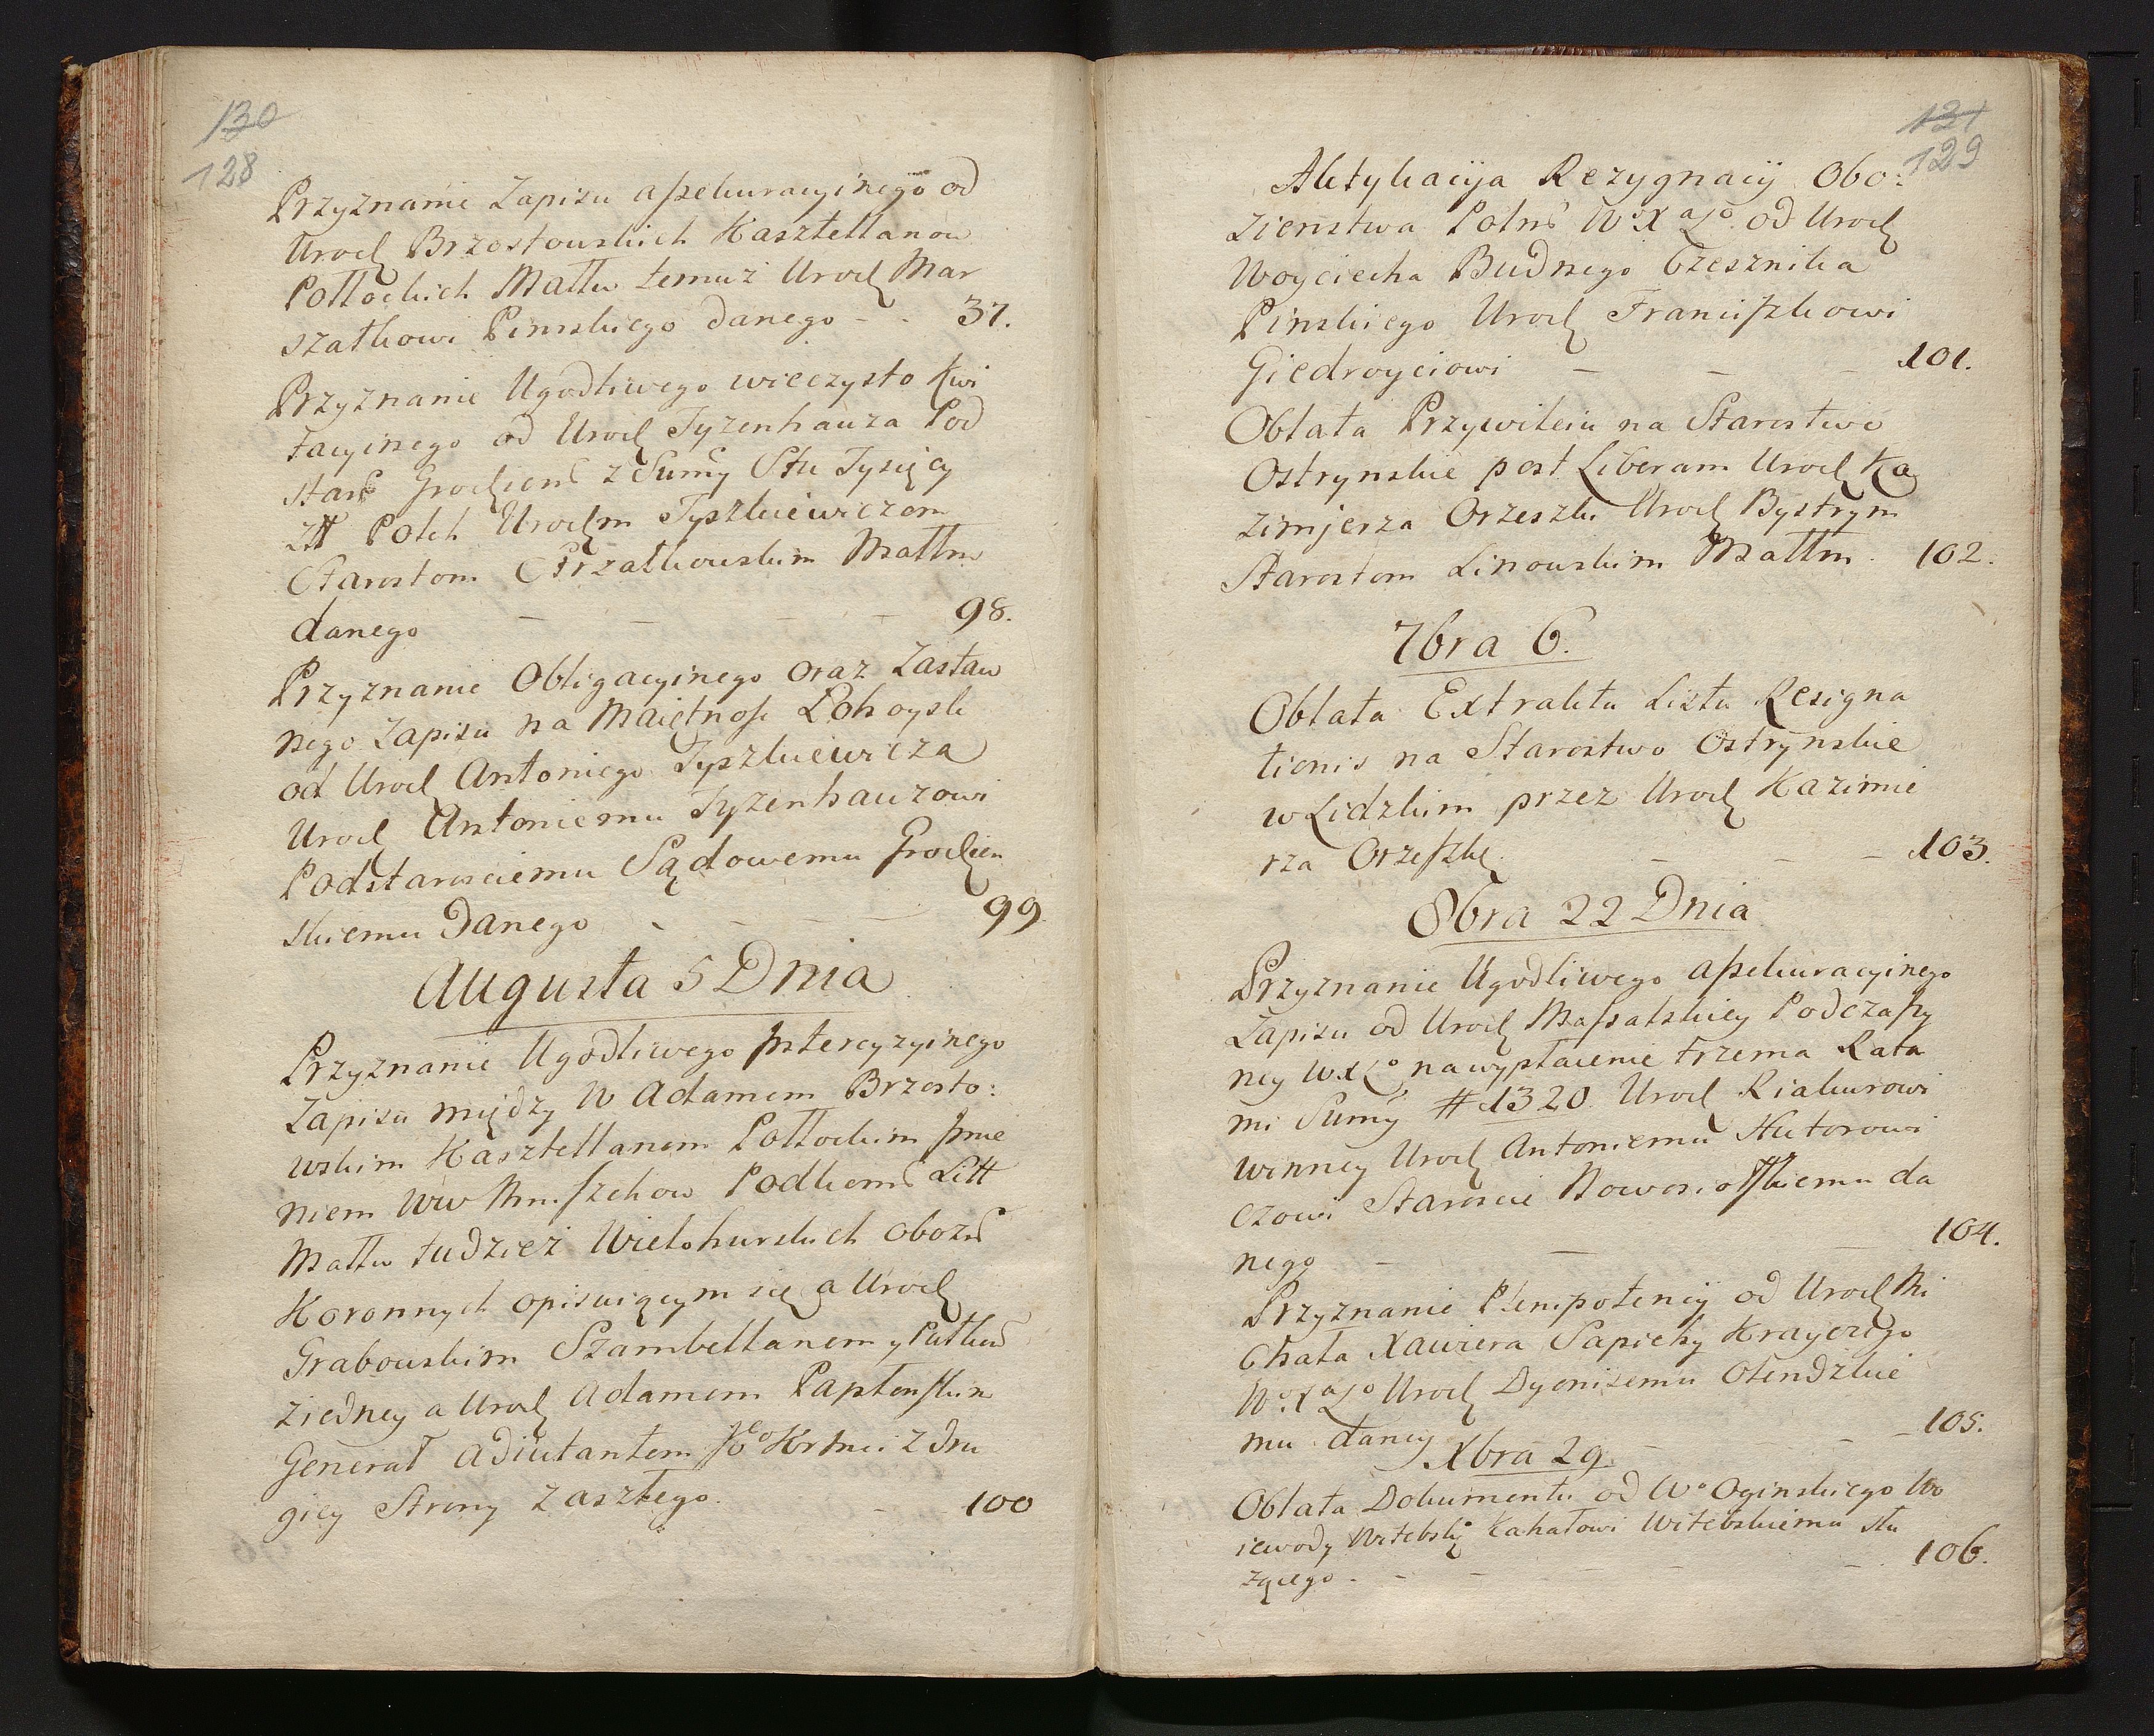 130
128
Przyznanie Zapisu assekuracyinego od
Urodz Brzostowskich Kasztellanow
Połłockich Małłw temuż Urodz Mar
szałkowi Pinskiego danego - - 37.
Przyznanie Ugodliwego wieczysto Kwi
tacyinego od Urodz Tyzenhauza Pod
stars Grodziens z Summy Stu Tysięcy
Złł Polch Urodzm Tyszkiewiczom
Starostom Strzałkowskim Małłm
danego - - - - 98.
Przyznanie Obligacyinego oraz Zastaw
nego Zapisu na Maiętnosc Łohoysk
od Urodz Antoniego Tyszkiewicza
Urodz Antoniemu Tyzenhauzowi
Podstarosciemu Sądowemu Grodzien
skiemu Danego - - - 99
Augusta 5 Dnia
Przyznanie Ugodliwego intercyzyinego
Zapisu między W Adamem Brzosto:
wskim Kasztellanem Połłockim Imie
niem Ww Mniszchow Podkoms Litt
Małłw tudzież Wielohurskich obozn
Koronnych opisuiącym się a Urodz
Grabowskim Szambellanem y Pułkow
ziedney a Urodz Adamem
Generał Adiutantem Jo Krmci z Dru
giey Strony zaszłego. - 100
131
129
Aktykacyja Rezygnacij Obo:
zienstwa Polns Wo X a Lo od Urodz
Woyciecha Budnego Czesznika
Pinskiego Urodz Franciszkowi
Giedroyciowi - - - 101.
Oblata Przywileiu na Starostwo
Ostrynskie post Liberam Urodz Ka
zimjerza Orzeszki Urodz Bystrym
Starostom Linowskim Małłm. 102.
7bra 6.
Oblata Extraktu Listu Resigna
tionis na Starostwo Ostrynskie
w Lidzkim przez Urodz Kazimie
rza Orzeszkę - - - 103.
8bra 22 Dnia
Przyznanie Ugodliwego assekuracyinego
Zapisu od Urodz Massalskiey Podczaszy
ney W.X.Lo na wypłacenie trzema Rata
mi Summy # 1320 Urodz Riakurowi
winney Urodz Antoniemu Hutorowi
czowi Staroscie da
nego - - - 104.
Przyznanie Plenipotencij od Urodz Mi
chała Xawiera Sapiehy Krayczego
Wo X a Lo Urodz Dyonisemu Olendzkie
mu daney - - - 105.
Xbra 29.
Oblata Dokumentu od Wo Oginskiego Wo
iewody Witebskgo Kahałowi Witebskiemu słu
zącego. - - - - 106.